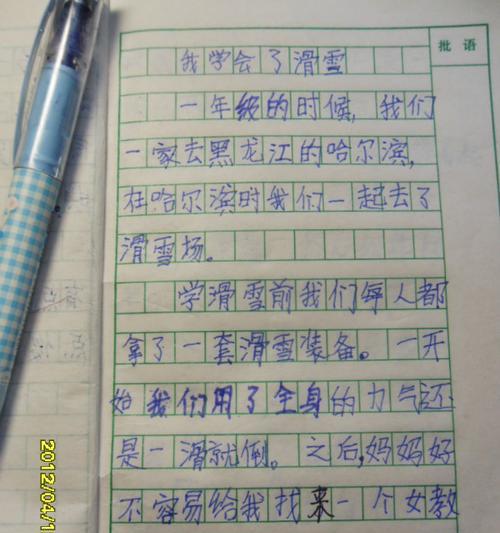 批语
我学会了滑雪
一年级的时候,我们
一家去黑龙江的哈尔滨,
在哈尔滨时我们一起去了
滑雪场。
学滑雪前我们每人都
拿了一套滑雪装备。一开
始我们用了全身的力气还
是一滑就倒。之后,妈妈好
不容易给我找来一个女教
2012/04/1